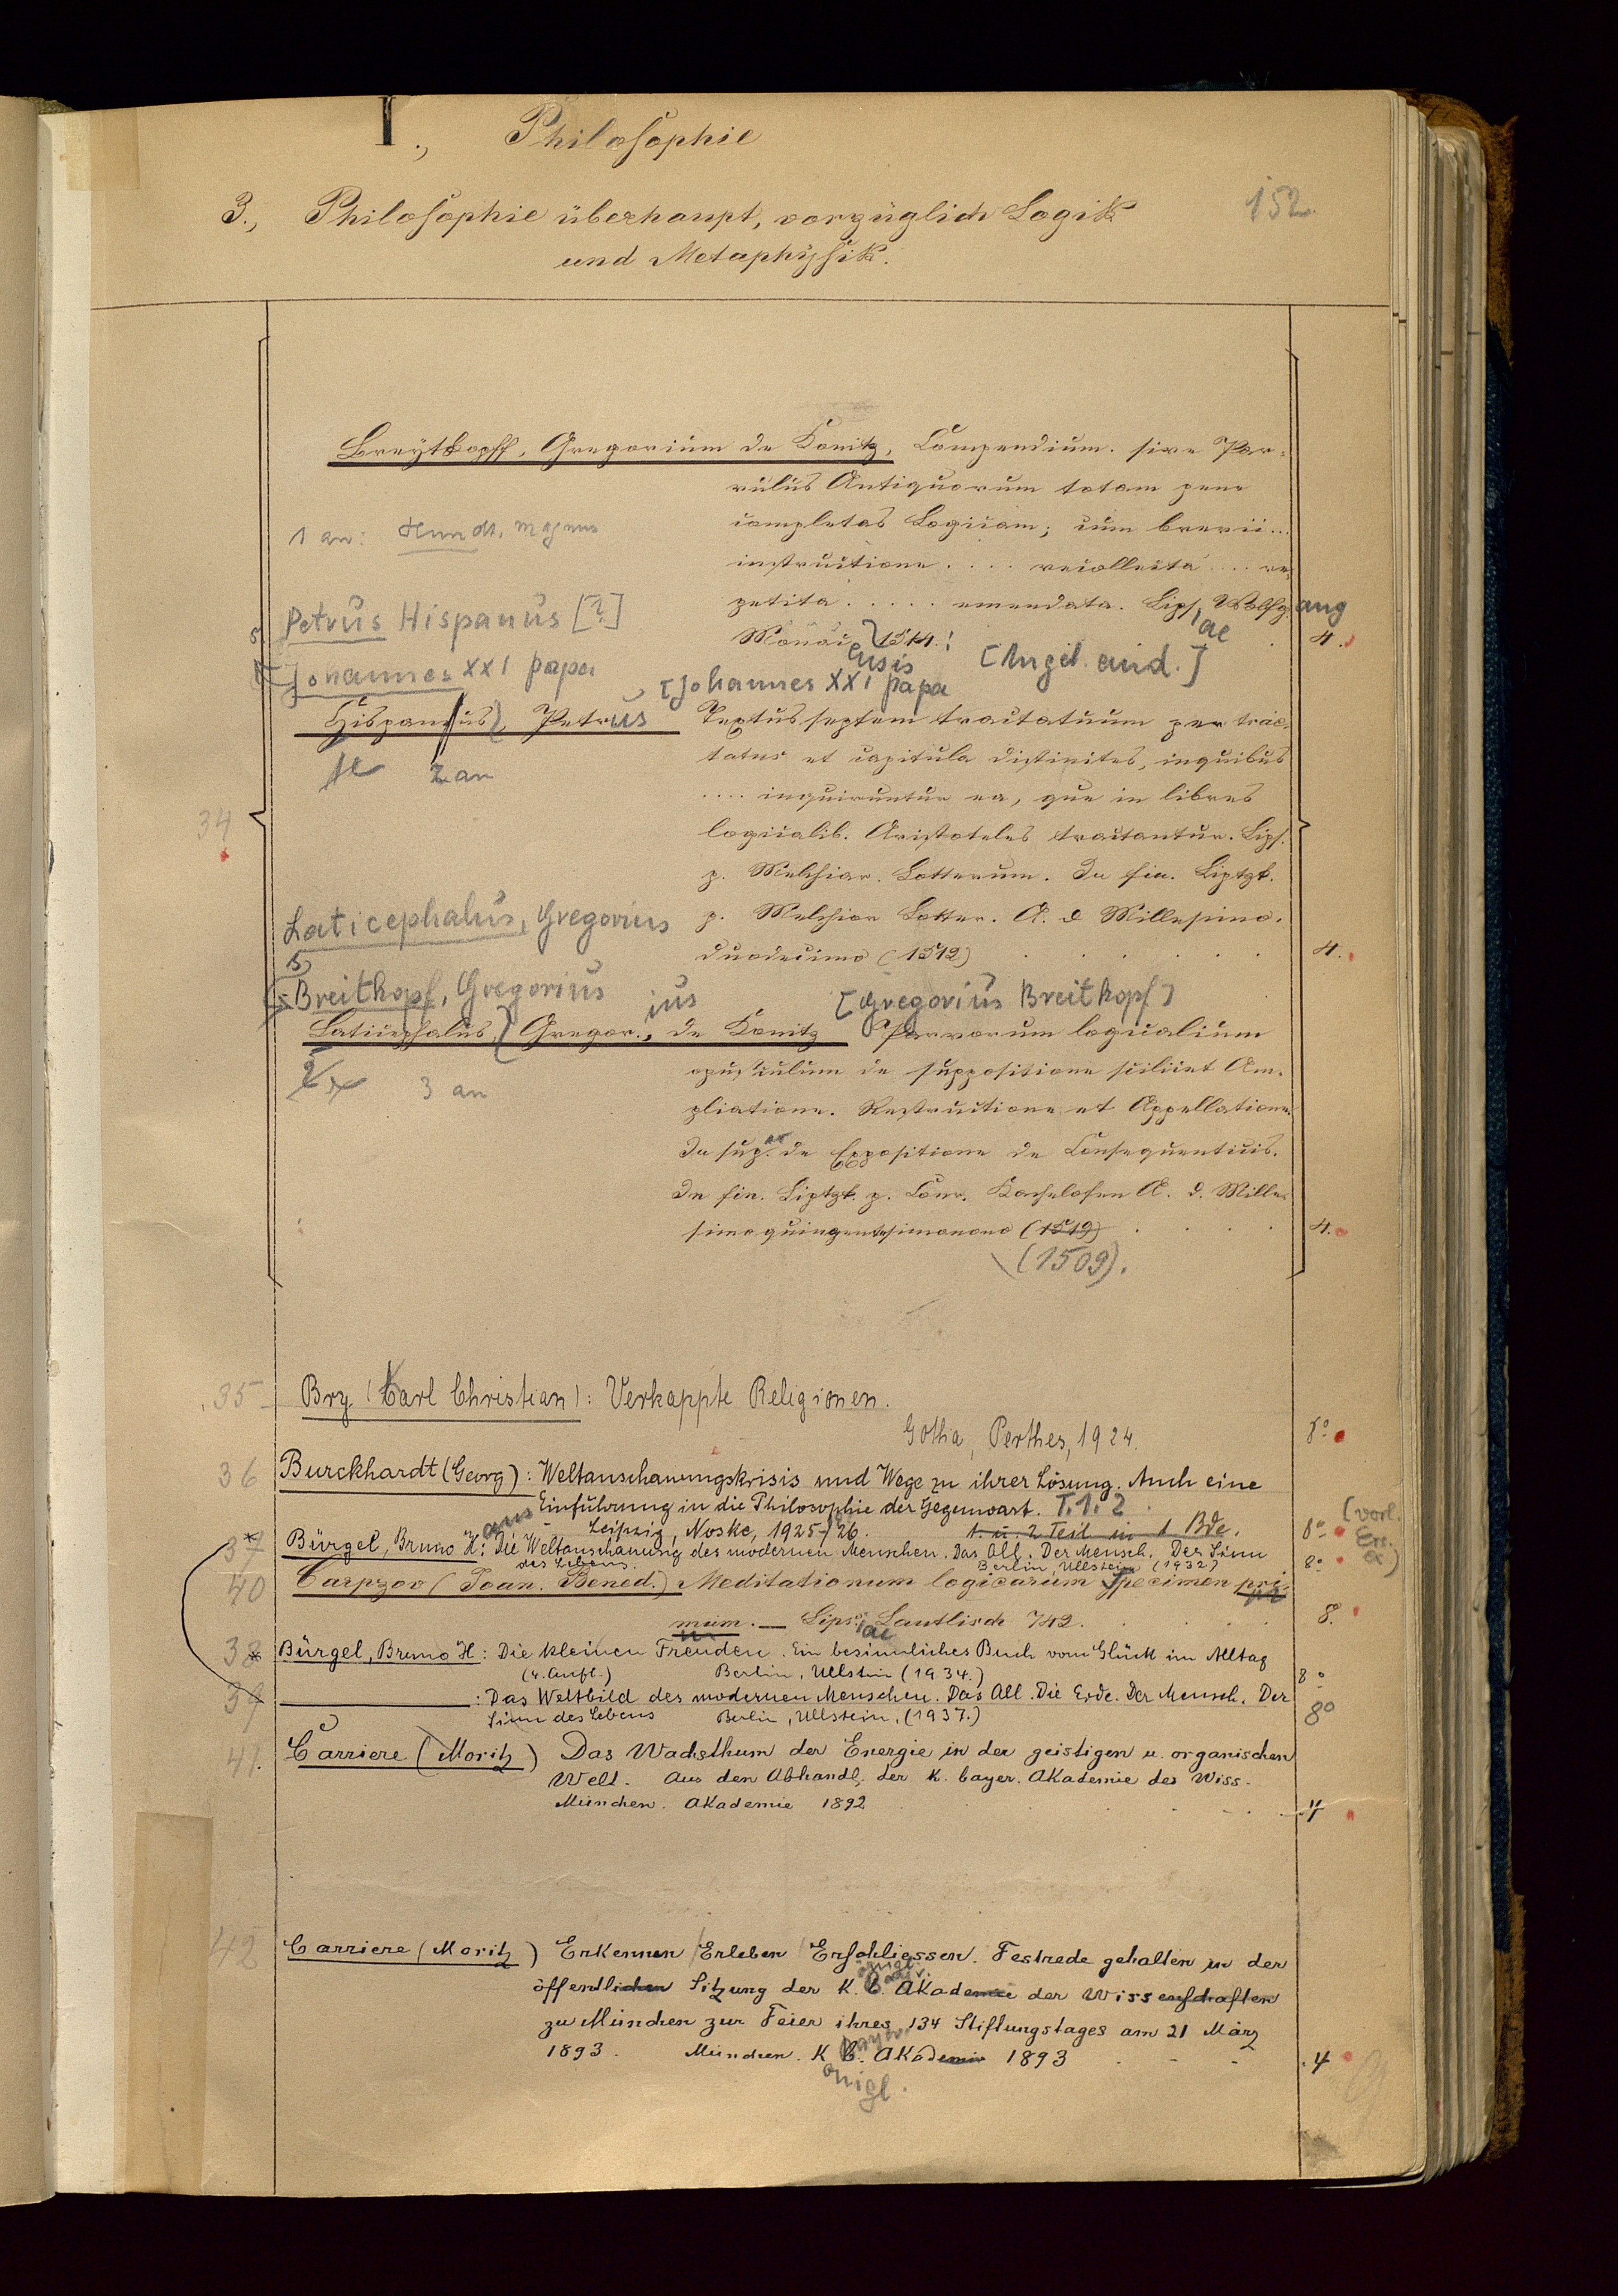 I., Philosophie
152.
3., Philosophie überhaupt, vorzüglich Logik
und Metaphysik.
Breytkopff, Gregorium de Konitz, Compendium. sive Par-
vulus Antiquorum totam pene
1 an: Hundt, Magnus
completas Logicam; cum brevii...
instructione .... recollecta .... re-
petita ..... emendata. Lips, Wolfgang
ae
Monac 1514.
ensis
4.
[Angeb. eind.]
Petrus Hispanus [?]
Johannes XXI papa
[Johannes XXI papa
Hispanus, Petrus Textus septem tractatuum per trac-
tatus et capitula distinctes, inquibus
2 an
.... inquiruntur ea, que in libros
34
logicalib. Aristoteles tractantur. Lips.
p. Melchior. Lotterum. In fin. Liptzk.
Laticephalus, Gregorius
p. Melchior Lotter. A. d Millesimo.
duodecimo (1512) 4.
Breitkopf, Gregorius
[Gregorius Breitkopf]
ius
Laticephalus, Gregor., de Konitz Parvorum logicalium
opusculum de suppositione scilicet Am-
3 an
pliatione. Restrictione et Appellatione.
In sup. de Expositione de Consequentiis.
In fin. Liptzk. p. Conr. Kachelofen A. d. Mille-
simo quingentesimonono (1519) 4.
(1509).
35 Bry (Carl Christian): Verkappte Religionen.
Gotha, Perthes, 1924. 8°
36 Burckhardt (Georg): Weltanschauungskrisis und Wege zu ihrer Lösung. Auch eine
Einführung in die Philosophie der Gegenwart. T. 1. 2
Leipzig, Noske, 1925-26. 1. u. 2 Teil in 1 Bde. 8°
[vorl.
Ers.
37 Bürgel, Bruno H.: Die Weltanschauung des modernen Menschen. Das All. Der Mensch. Der Sinn
des Lebens. Berlin, Ullstein (1932) 8°
40 Carpzov (Joan. Bened.) Meditationum logicarum Specimen pri-
mum. — Lips. Lantlisch 742. 8.
ae
38 Bürgel, Bruno H: Die kleinen Freuden. Ein besinnliches Buch vom Glück im Alltag
(4. Aufl.) Berlin, Ullstein (1934.) 8°
39 : Das Weltbild des modernen Menschen. Das All. Die Erde. Der Mensch. Der
Sinn des Lebens Berlin, Ullstein, (1937.) 8°
41. Carriere (Moritz) Das Wachsthum der Energie in der geistigen u. organischen
Welt. Aus den Abhandl. der K. bayer. Akademie des Wiss.
München. Akademie 1892 4
42 Carriere (Moritz) Erkennen Erleben Erschliessen. Festrede gehalten in der
öffentlichen Sitzung der K. B. Akademie der Wissenschaften
zu München zur Feier ihres 134 Stiftungstages am 21 März
1893. München. K B. Akademie 1893 4